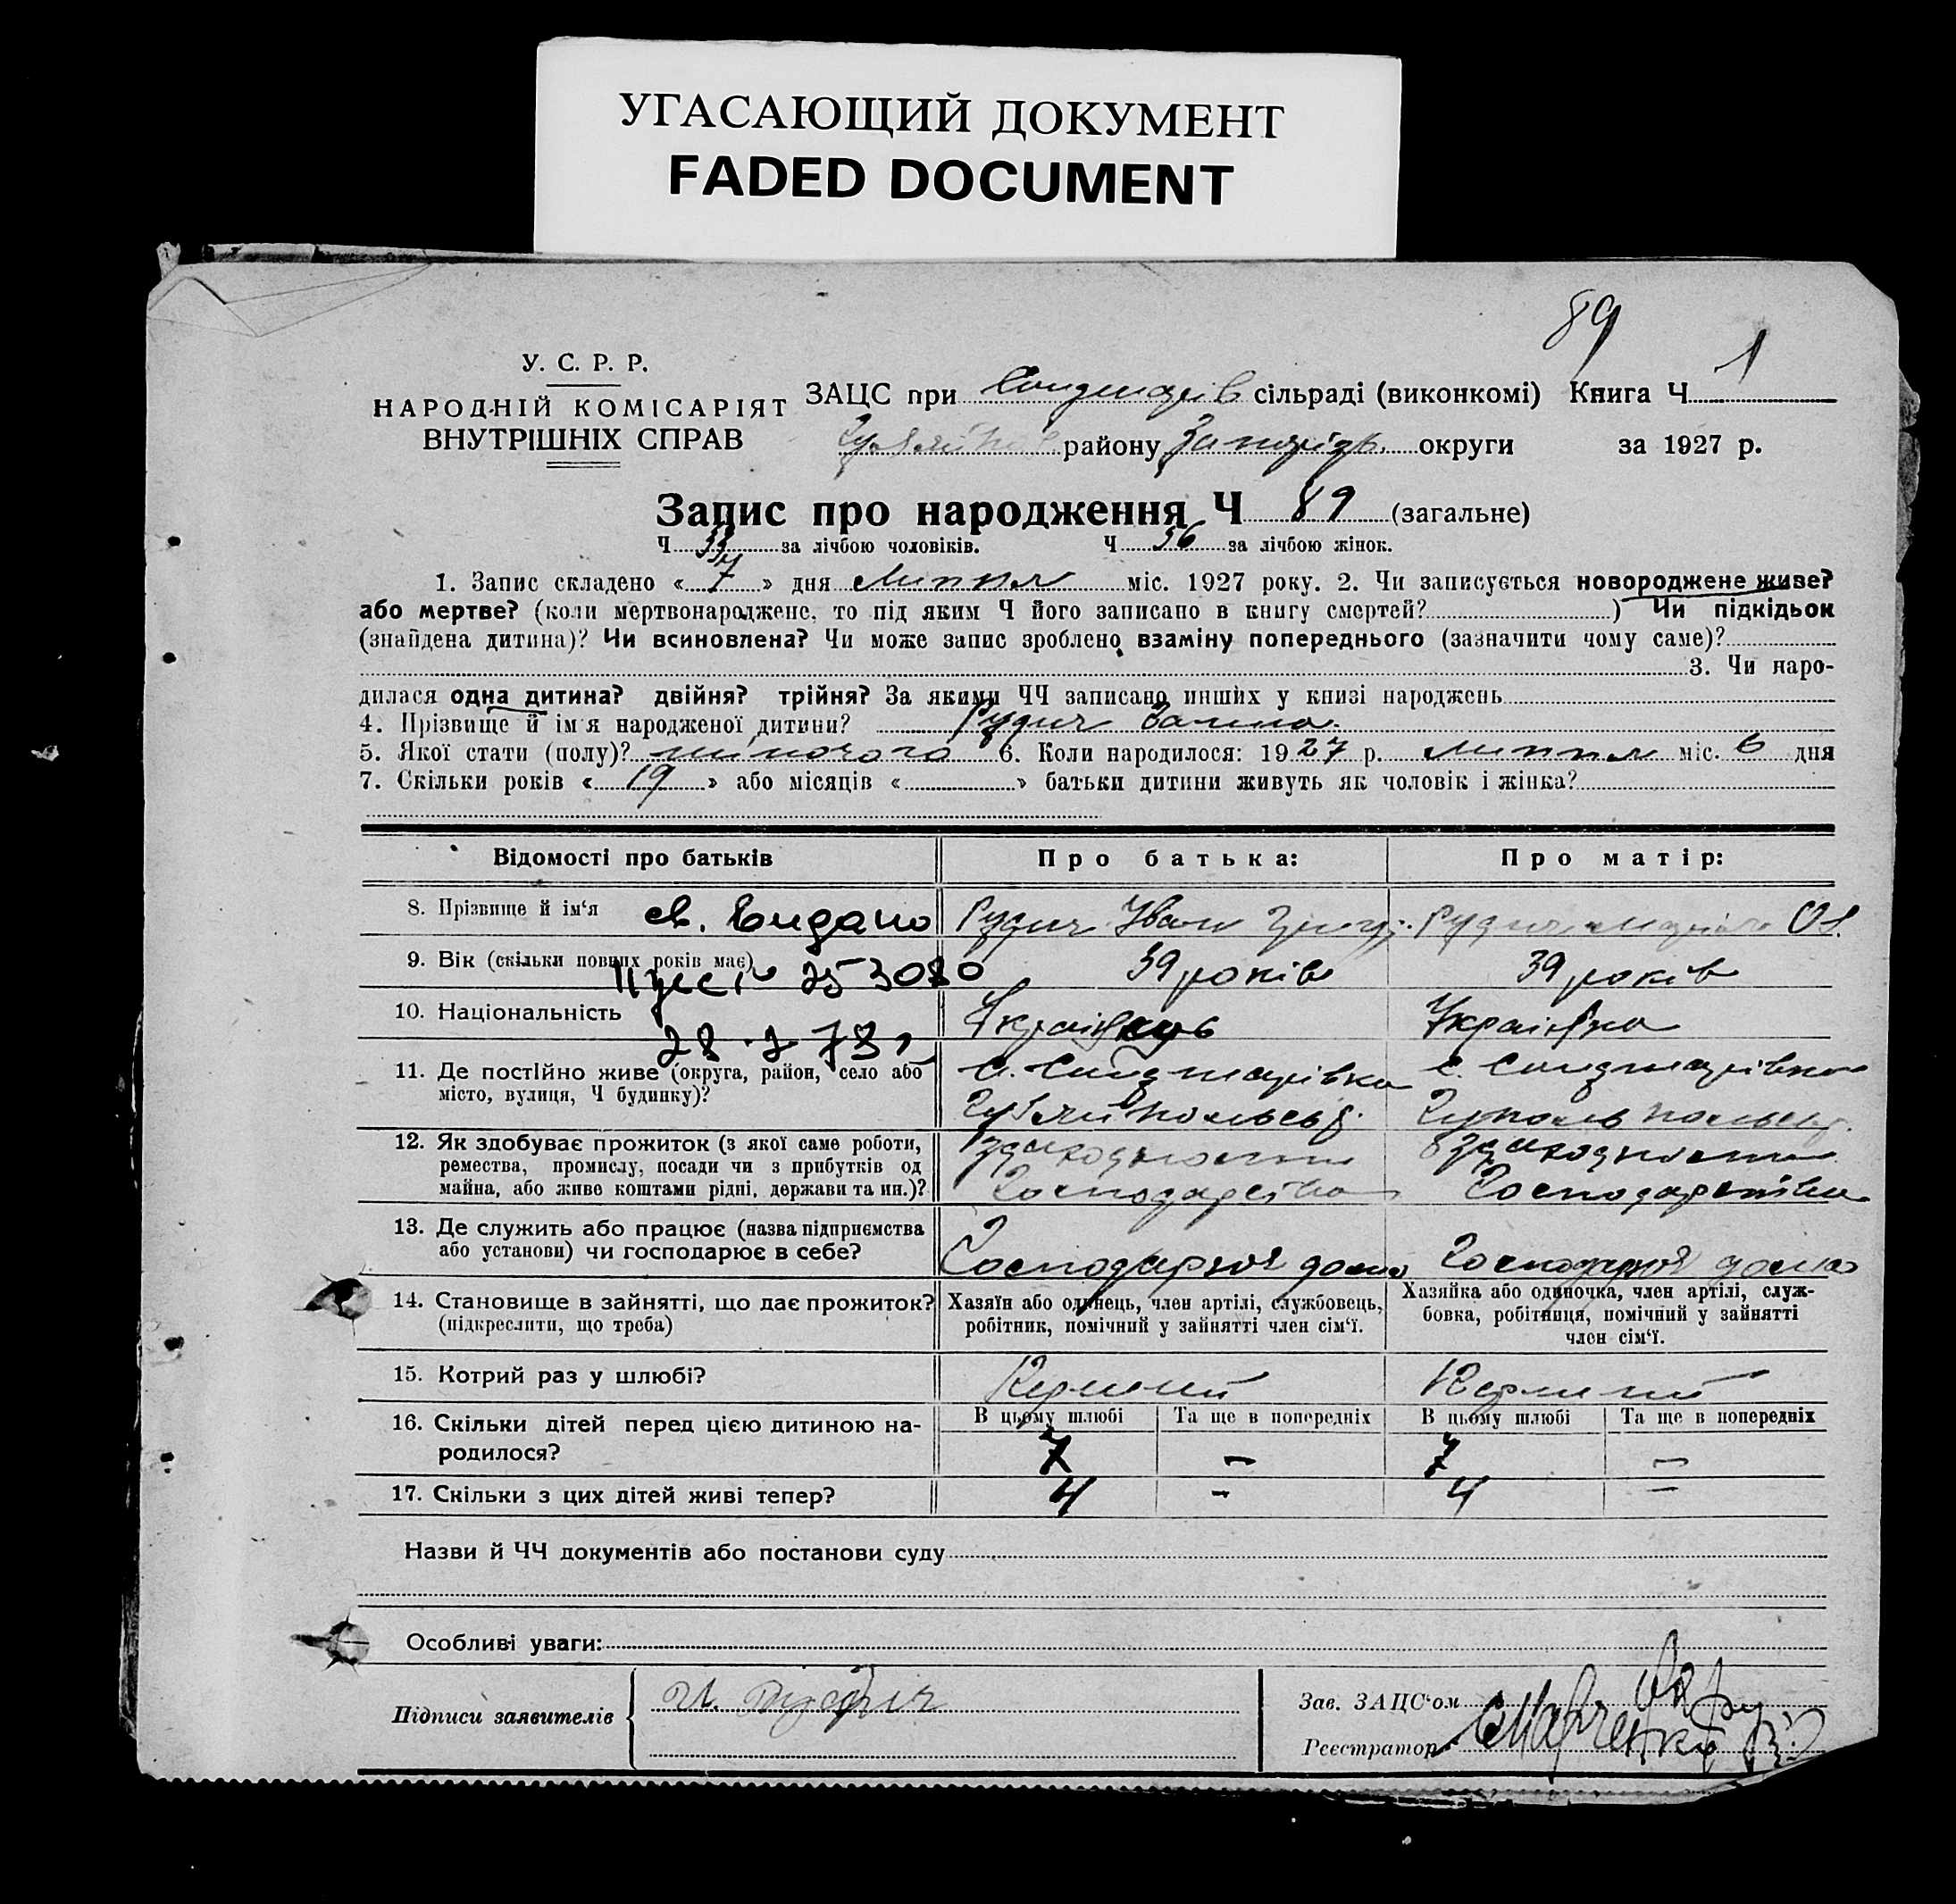 УГАСАЮЩИЙ ДОКУМЕНТ
FADED DOCUMENT
89
У. С. Р. Р.
НАРОДНІЙ КОМІСАРІЯТ
ВНУТРІШНІХ СПРАВ
ЗАЦС при сільраді (виконкомі) Книга Ч 1
району округи за 1927 р.
Запис про народження Ч 89 (загальне)
Ч 33 за лічбою чоловіків. Ч 56 за лічбою жінок.
1. Запис складено « 7 » дня Липня міс. 1927 року. 2. Чи записується новороджене живе?
або мертве? (коли мертвонароджене, то під яким Ч його записано в книгу смертей? ) Чи підкідьок
(знайдена дитина)? Чи всиновлена? Чи може запис зроблено взаміну попереднього (зазначити чому саме)?
3. Чи наро-
дилася одна дитина? двійня? трійня? За якими ЧЧ записано инших у книзі народжень
4. Прізвище й ім'я народженої дитини? Рудич
5. Якої стати (полу)? жіночого 6. Коли народилося: 1927 р. липня міс. 6 дня
7. Скільки років « 19 » або місяців « » батьки дитини живуть як чоловік і жінка?
Відомості про батьків Про батька: Про матір:
8. Прізвище й ім'я св. Видано Рудич Іван Григ. Рудич Марія Ол.
9. Вік (скільки повних років має) 39 років 39 років
10. Національність Українець Українка
28.2.73
11. Де постійно живе (округа, район, село або
місто, вулиця, Ч будинку)?
12. Як здобуває прожиток (з якої саме роботи,
ремества, промислу, посади чи з прибутків од
майна, або живе коштами рідні, держави та ин.)?
Господарства Господарства
13. Де служить або працює (назва підприємства
або установи) чи господарює в себе?
Господарює дома Господарює дома
14. Становище в зайнятті, що дає прожиток?
(підкреслити, що треба)
Хазяїн або одинець, член артілі, службовець,
робітник, помічний у зайнятті член сім'ї.
Хазяйка або одиночка, член артілі, служ-
бовка, робітниця, помічний у зайнятті
член сім'ї.
15. Котрий раз у шлюбі? Первий Первий
16. Скільки дітей перед цією дитиною на-
родилося?
В цьому шлюбі Та ще в попередніх В цьому шлюбі Та ще в попередніх
7 — 7 —
17. Скільки з цих дітей живі тепер? 4 - 4 —
Назви й ЧЧ документів або постанови суду
Особливі уваги:
Підписи заявителів И. Рудич
Зав. ЗАЦС'ом
Реєстратор Марченко